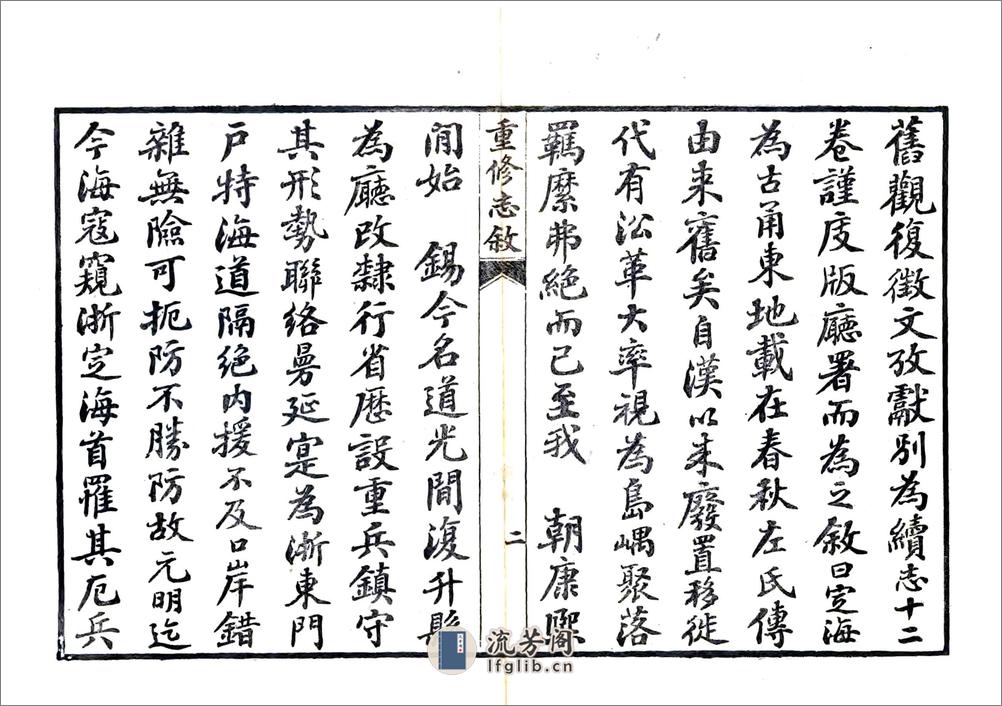 舊觀復徵文攷獻别為續志十二
卷謹庋版廳署而為之敘曰定海
為古甬東地載在春秋左氏傳
由来舊矣自漢以来廢置移徙
代有沿革大率視為島嵎聚落
羈縻弗絶而已至我 朝康熙
重修志敘
二
閒始 錫今名道光閒復升縣
為廳改隸行省歷設重兵鎮守
其形勢聯絡曼延寔為浙東門
戸特海道隔絶内援不及口岸錯
雜無險可扼防不勝防故元明迄
今海寇窺浙定海首罹其厄兵
流芳阁
lfglib.cn